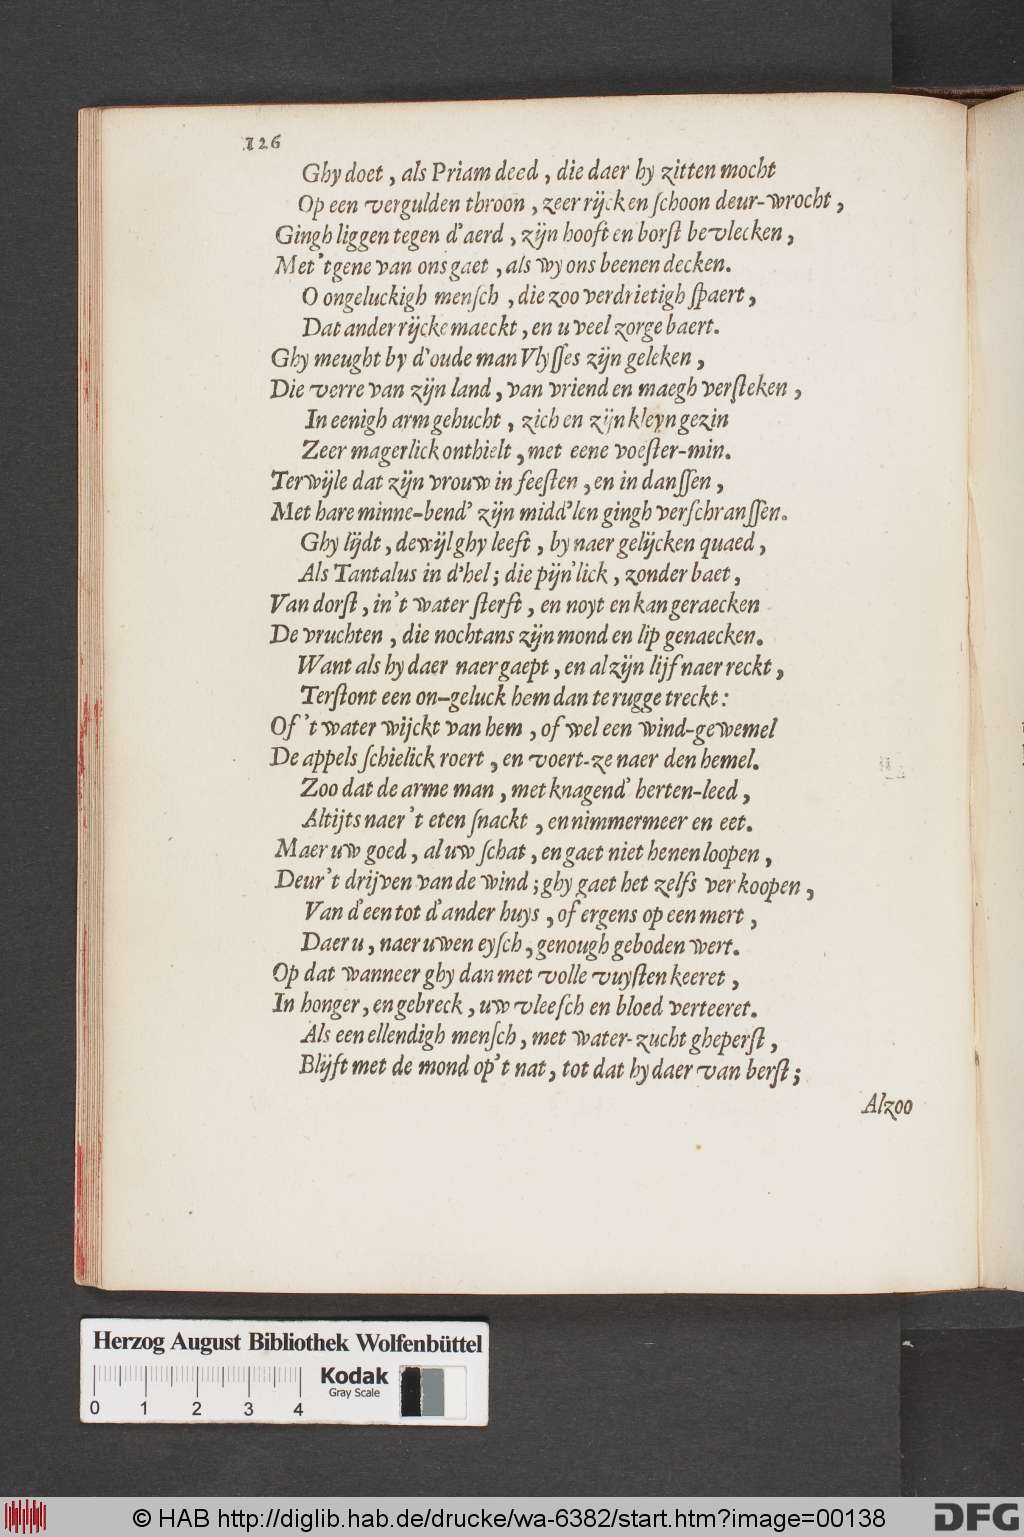 126
Ghy doet, als Priam deed, die daer hy zitten mocht
Op een vergulden throon, zeer rijck en ſchoon deur-wrocht,
Gingh liggen tegen d'aerd, zijn hooft en borſt bevlecken,
Met 'tgene van ons gaet, als wy ons beenen decken.
O ongeluckigh menſch, die zoo verdrietigh ſpaert,
Dat ander rijcke maeckt, en u veel zorge baert.
Ghy meught by d'oude man Vlyſſes zijn geleken,
Die verre van zijn land, van vriend en maegh verſteken,
In eenigh arm gehucht, zich en zijn kleyn gezin
Zeer magerlick onthielt, met eene voeſter-min.
Terwijle dat zijn vrouw in feeſten, en in danſſen,
Met hare minne-bend' zijn midd'len gingh verſchranſſen.
Ghy lijdt, dewijl ghy leeft, by naer gelijcken quaed,
Als Tantalus in d'hel; die pijn'lick, zonder baet,
Van dorſt, in 't water ſterft, en noyt en kan geraecken
De vruchten, die nochtans zijn mond en lip genaecken.
Want als hy daer naer gaept, en al zijn lijf naer reckt,
Terſtont een on-geluck hem dan te rugge treckt:
Of 't water wijckt van hem, of wel een wind-gewemel
De appels ſchielick roert, en voert-ze naer den hemel.
Zoo dat de arme man, met knagend' herten-leed,
Altijts naer 't eten ſnackt, en nimmermeer en eet.
Maer uw goed, al uw ſchat, en gaet niet henen loopen,
Deur 't drijven van de wind; ghy gaet het zelfs verkoopen,
Van d'een tot d'ander huys, of ergens op een mert,
Daer u, naer uwen eyſch, genough geboden wert.
Op dat wanneer ghy dan met volle vuyſten keeret,
In honger, en gebreck, uw vleeſch en bloed verteeret.
Als een ellendigh menſch, met water-zucht gheperſt,
Blijft met de mond op 't nat, tot dat hy daer van berſt;
Alzoo
Herzog August Bibliothek Wolfenbüttel
Kodak
Gray Scale
0 1 2 3 4
© HAB http://diglib.hab.de/drucke/wa-6382/start.htm?image=00138
DFG